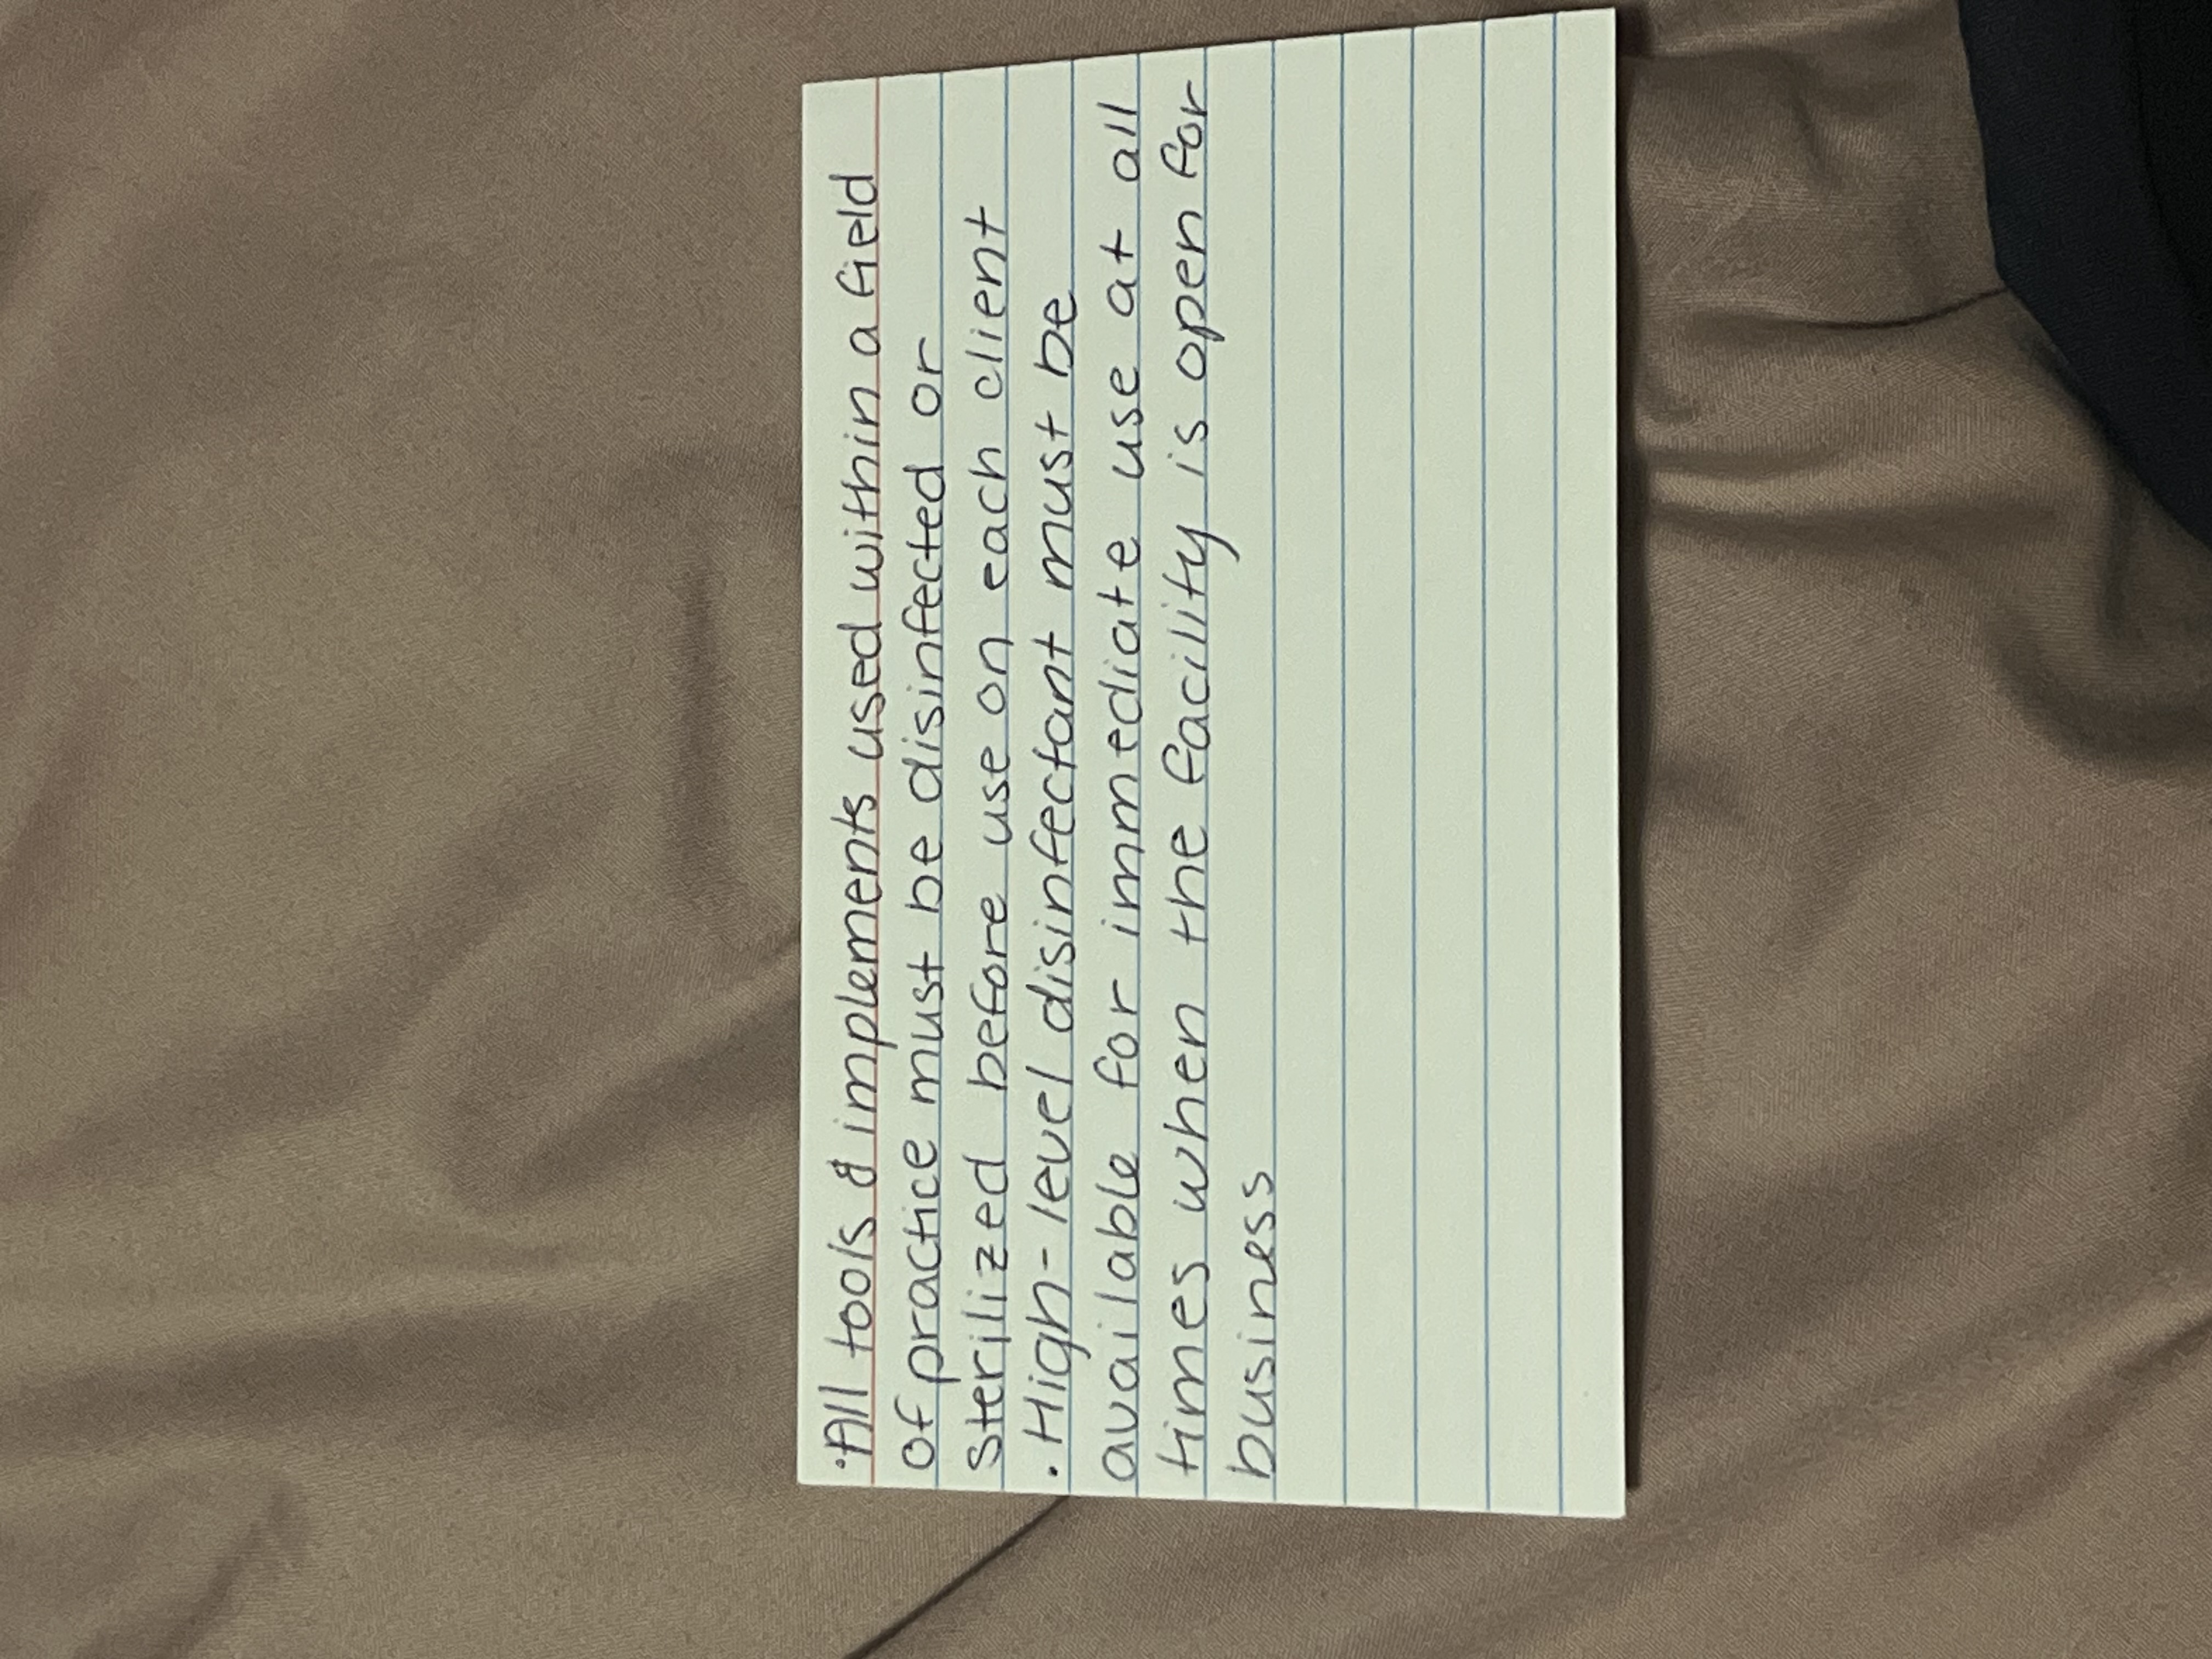 •All tools & implements used within a field
of practice must be disinfected or
sterilized before use on each client
• High-level disinfectant must be
available for immediate use at all
times when the facility is open for
business